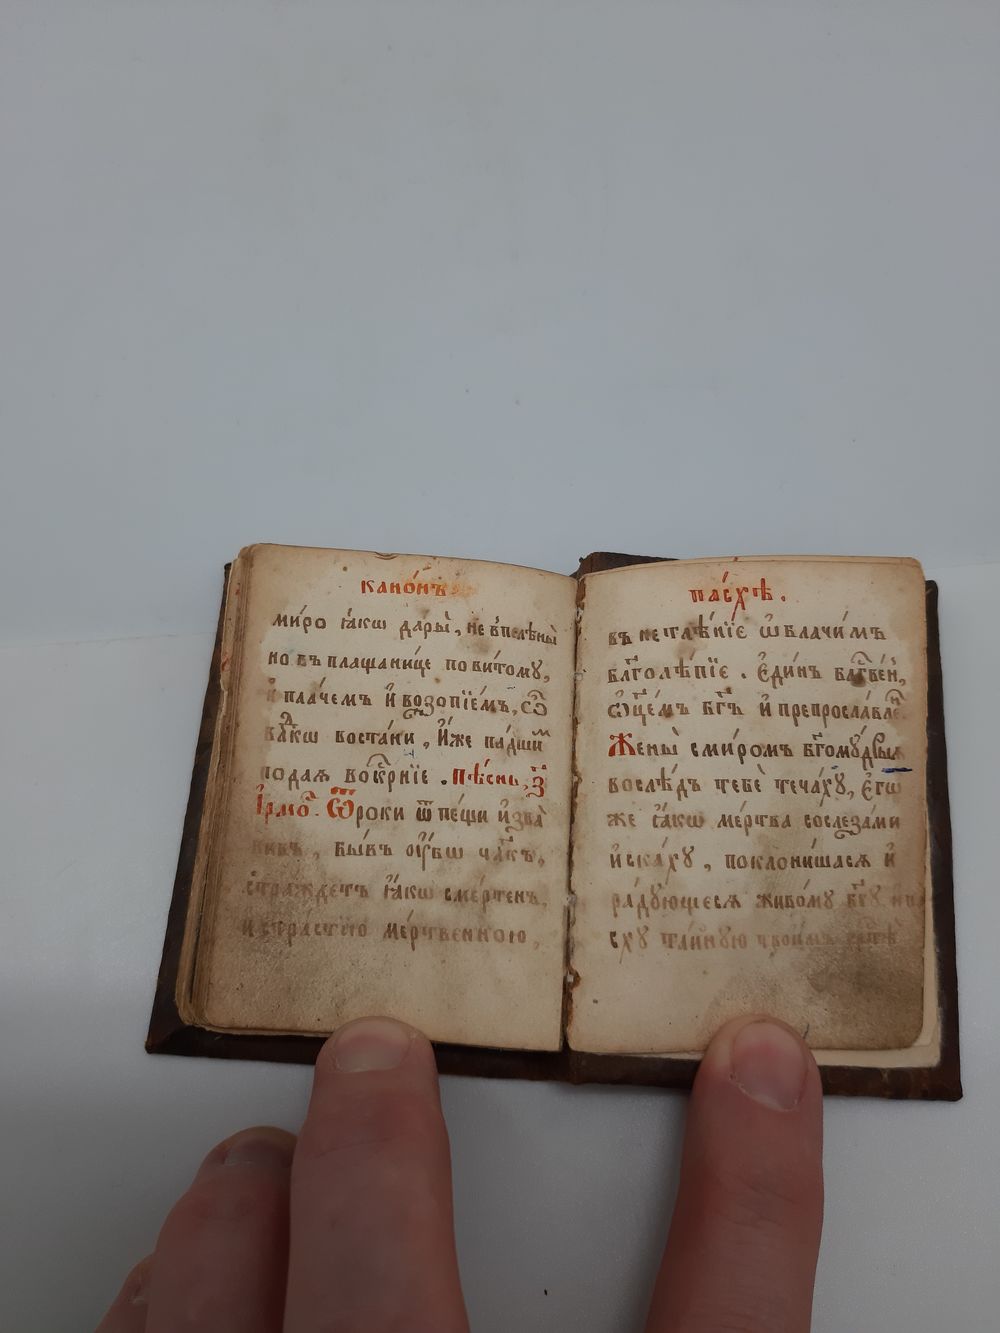 кано́нъ
ми́ро ꙗ҆́кѡ да́ры̀, не в̾пеле́ны̀
но въ плащани́це пови́тому,
и҆ пла́чемъ и҆ возопїе́мъ, ѽ
влⷣкѡ воста́ни, и҆́же па́дшиⷨ
подаѧ̀ воскрⷭ҇нїе . пѣ́снь, з҃
і҆рмоⷭ҇ Ѿроки ѿ пе́щи и҆зба̀
вивъ, бы́въ ᲂу҆́бѡ чл҃къ,
стра́ждетъ ꙗ҆́кѡ сме́ртенъ,
и҆ стра́стїю ме́ртвенною,
па́схѣ .
въ нетлѣ́нїе ѡ҆блачи́мъ
бл҃голѣ́пїе . є҆ди́нъ блгⷭ҇ве́н,
ѻ҆ц҃е́мъ бг҃ъ и҆ препросла́вле
Жены̀ с ми́ромъ бг҃ому́дрыѧ
вослѣ́дъ тебѐ теча́ху, є҆гѡ
же ꙗ҆́кѡ ме́ртва сослеза́ми
и҆ска́ху, поклони́шасѧ и҆
ра́дующесѧ живо́му бг҃у, и па
сху та́йную твои́мъ